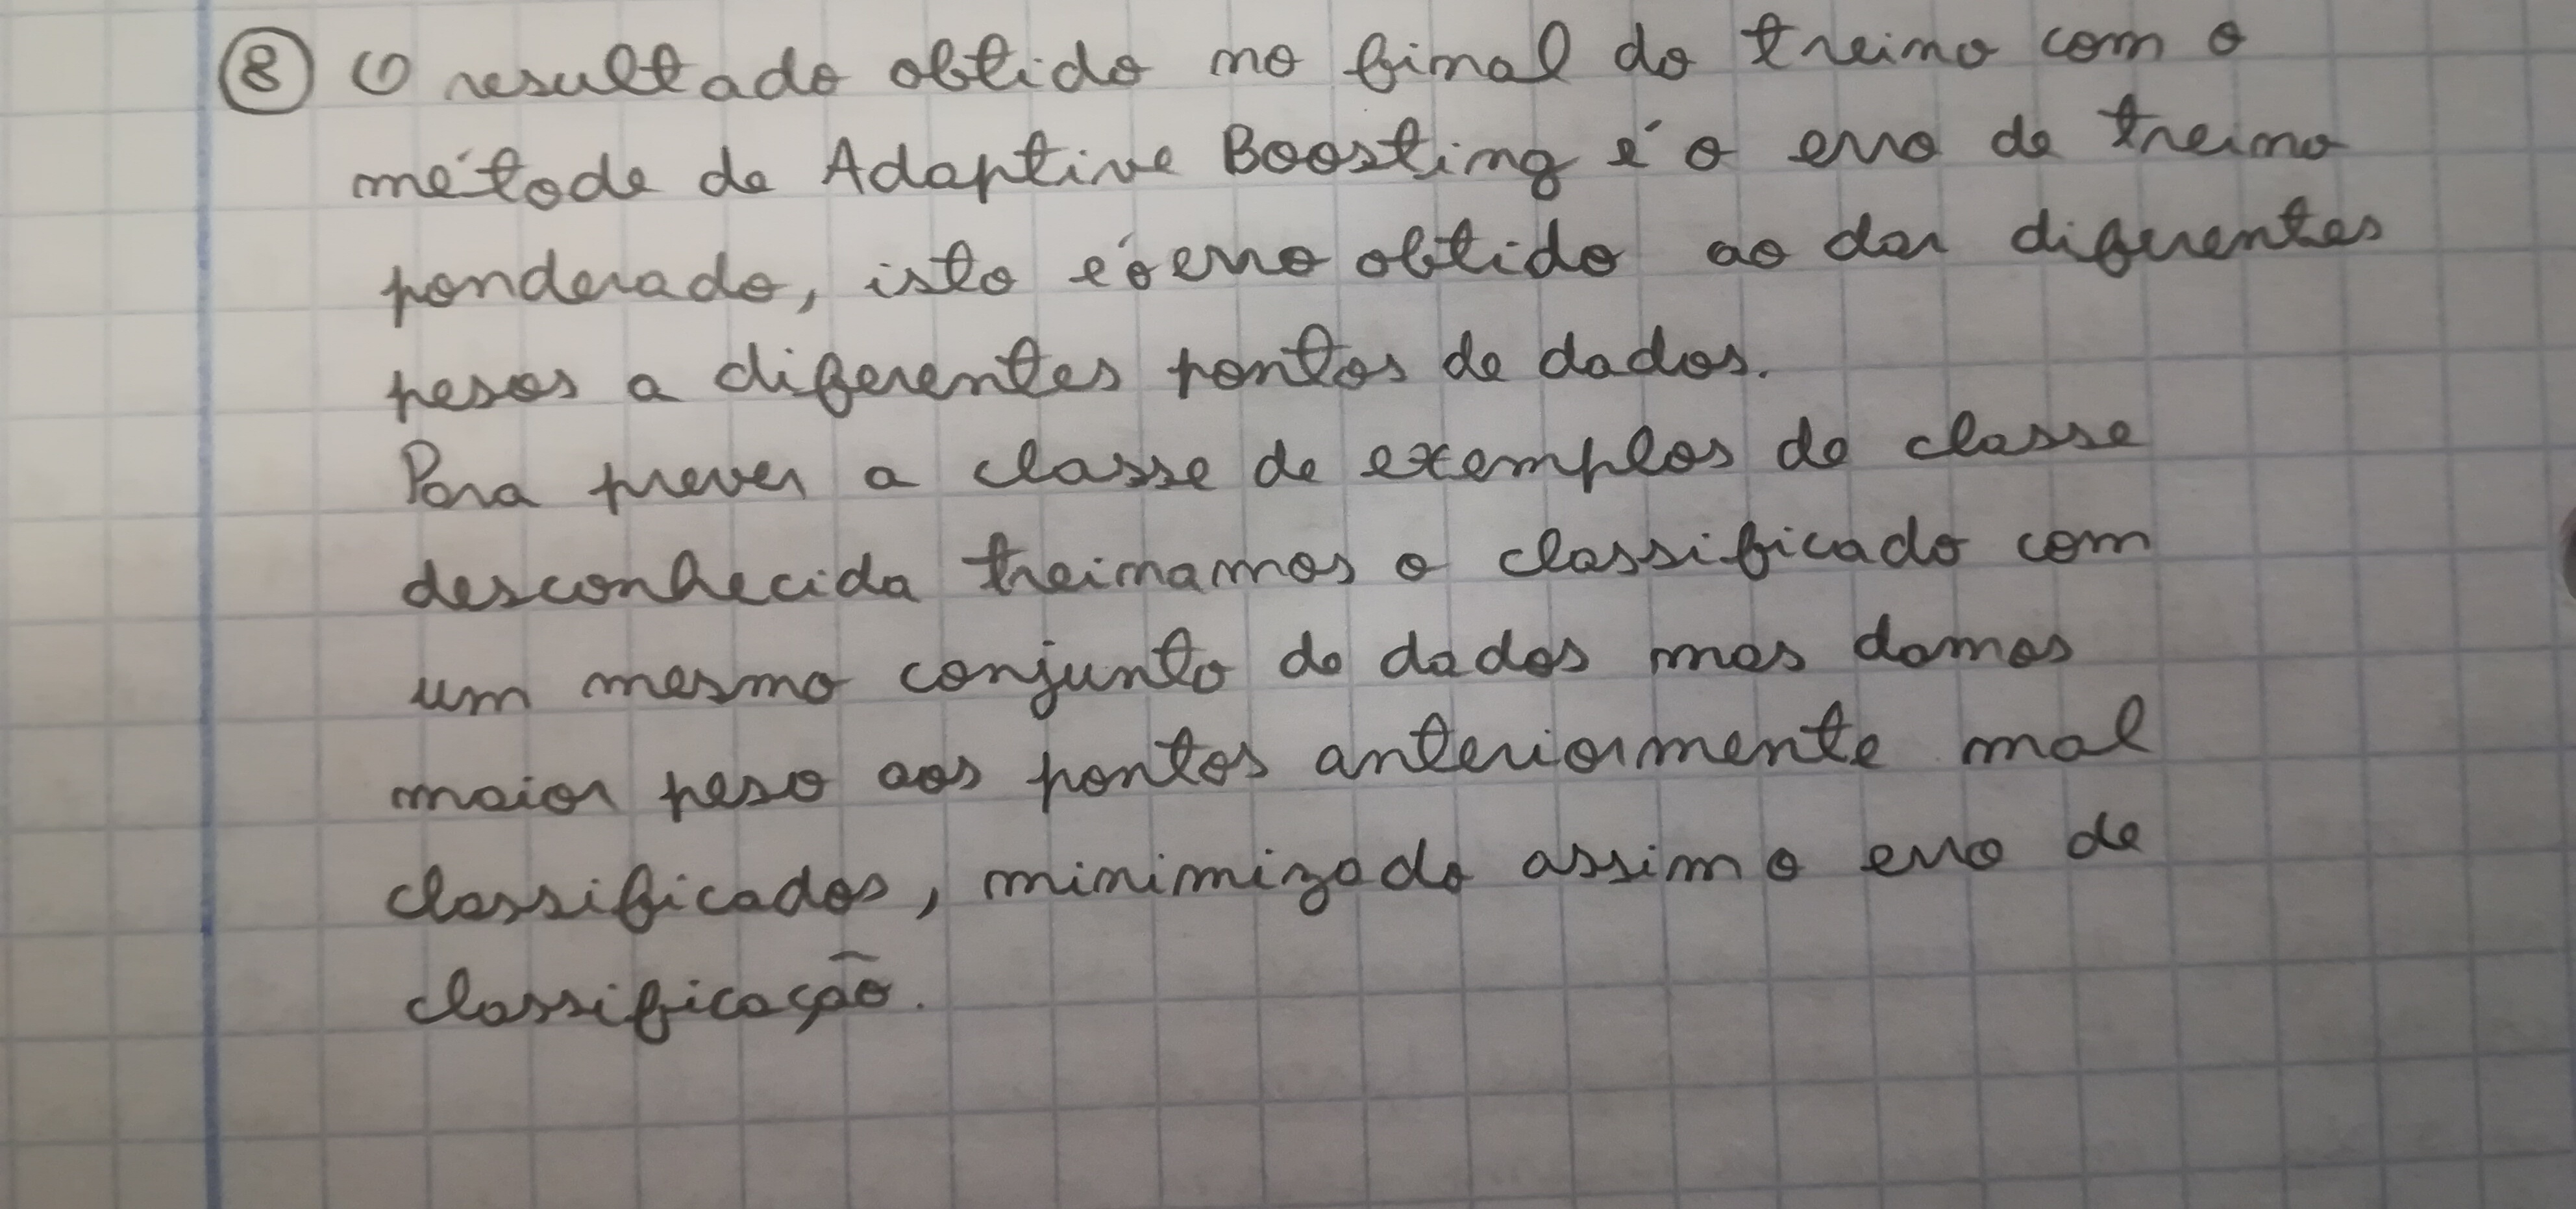 ⑧ O resultado obtido no final do treino com o
método de Adaptive Boosting é o erro de treino
ponderado, isto é o erro obtido ao dar diferentes
pesos a diferentes pontos de dados.
Para prever a classe de exemplos de classe
desconhecida treinamos o classificado com
um mesmo conjunto de dados mas damos
maior peso aos pontos anteriormente mal
classificados, minimizado assim o erro de
classificação.